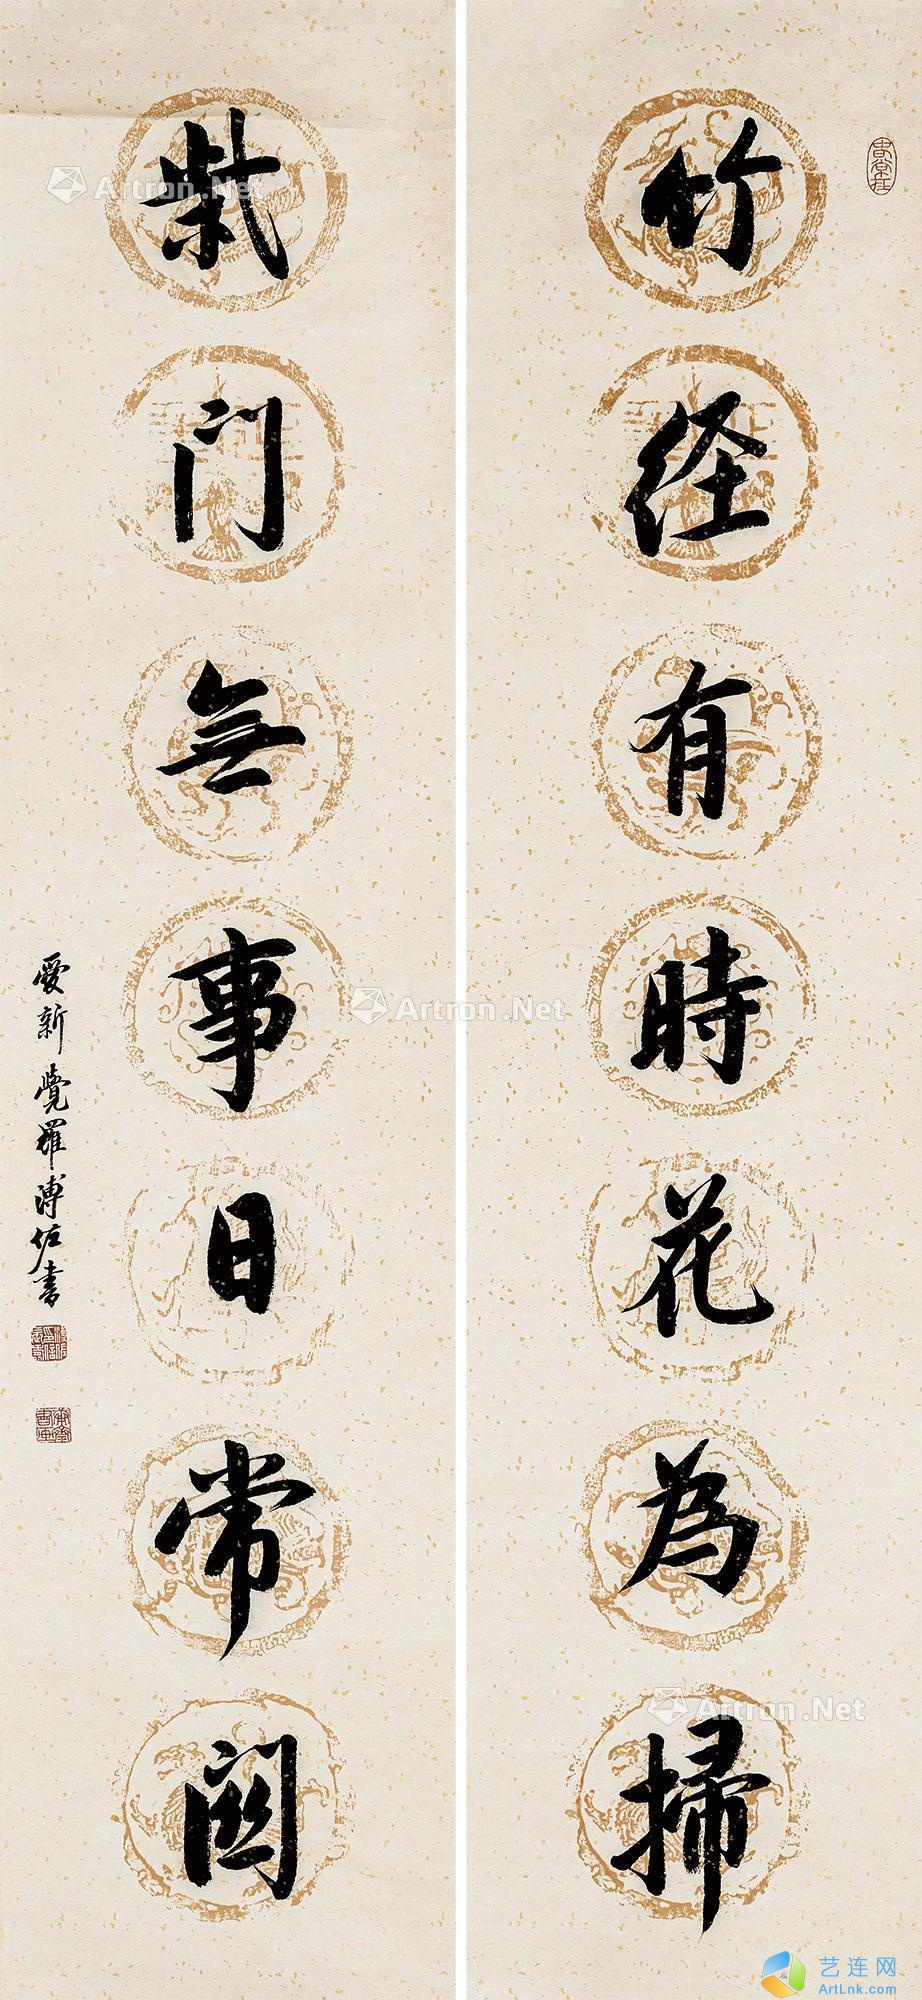 竹径有時花為掃
柴门無事日常関
愛新覺羅溥佐書
Artron.Net
Artron.Net
Artron.Net
艺连网
ArtLnk.com